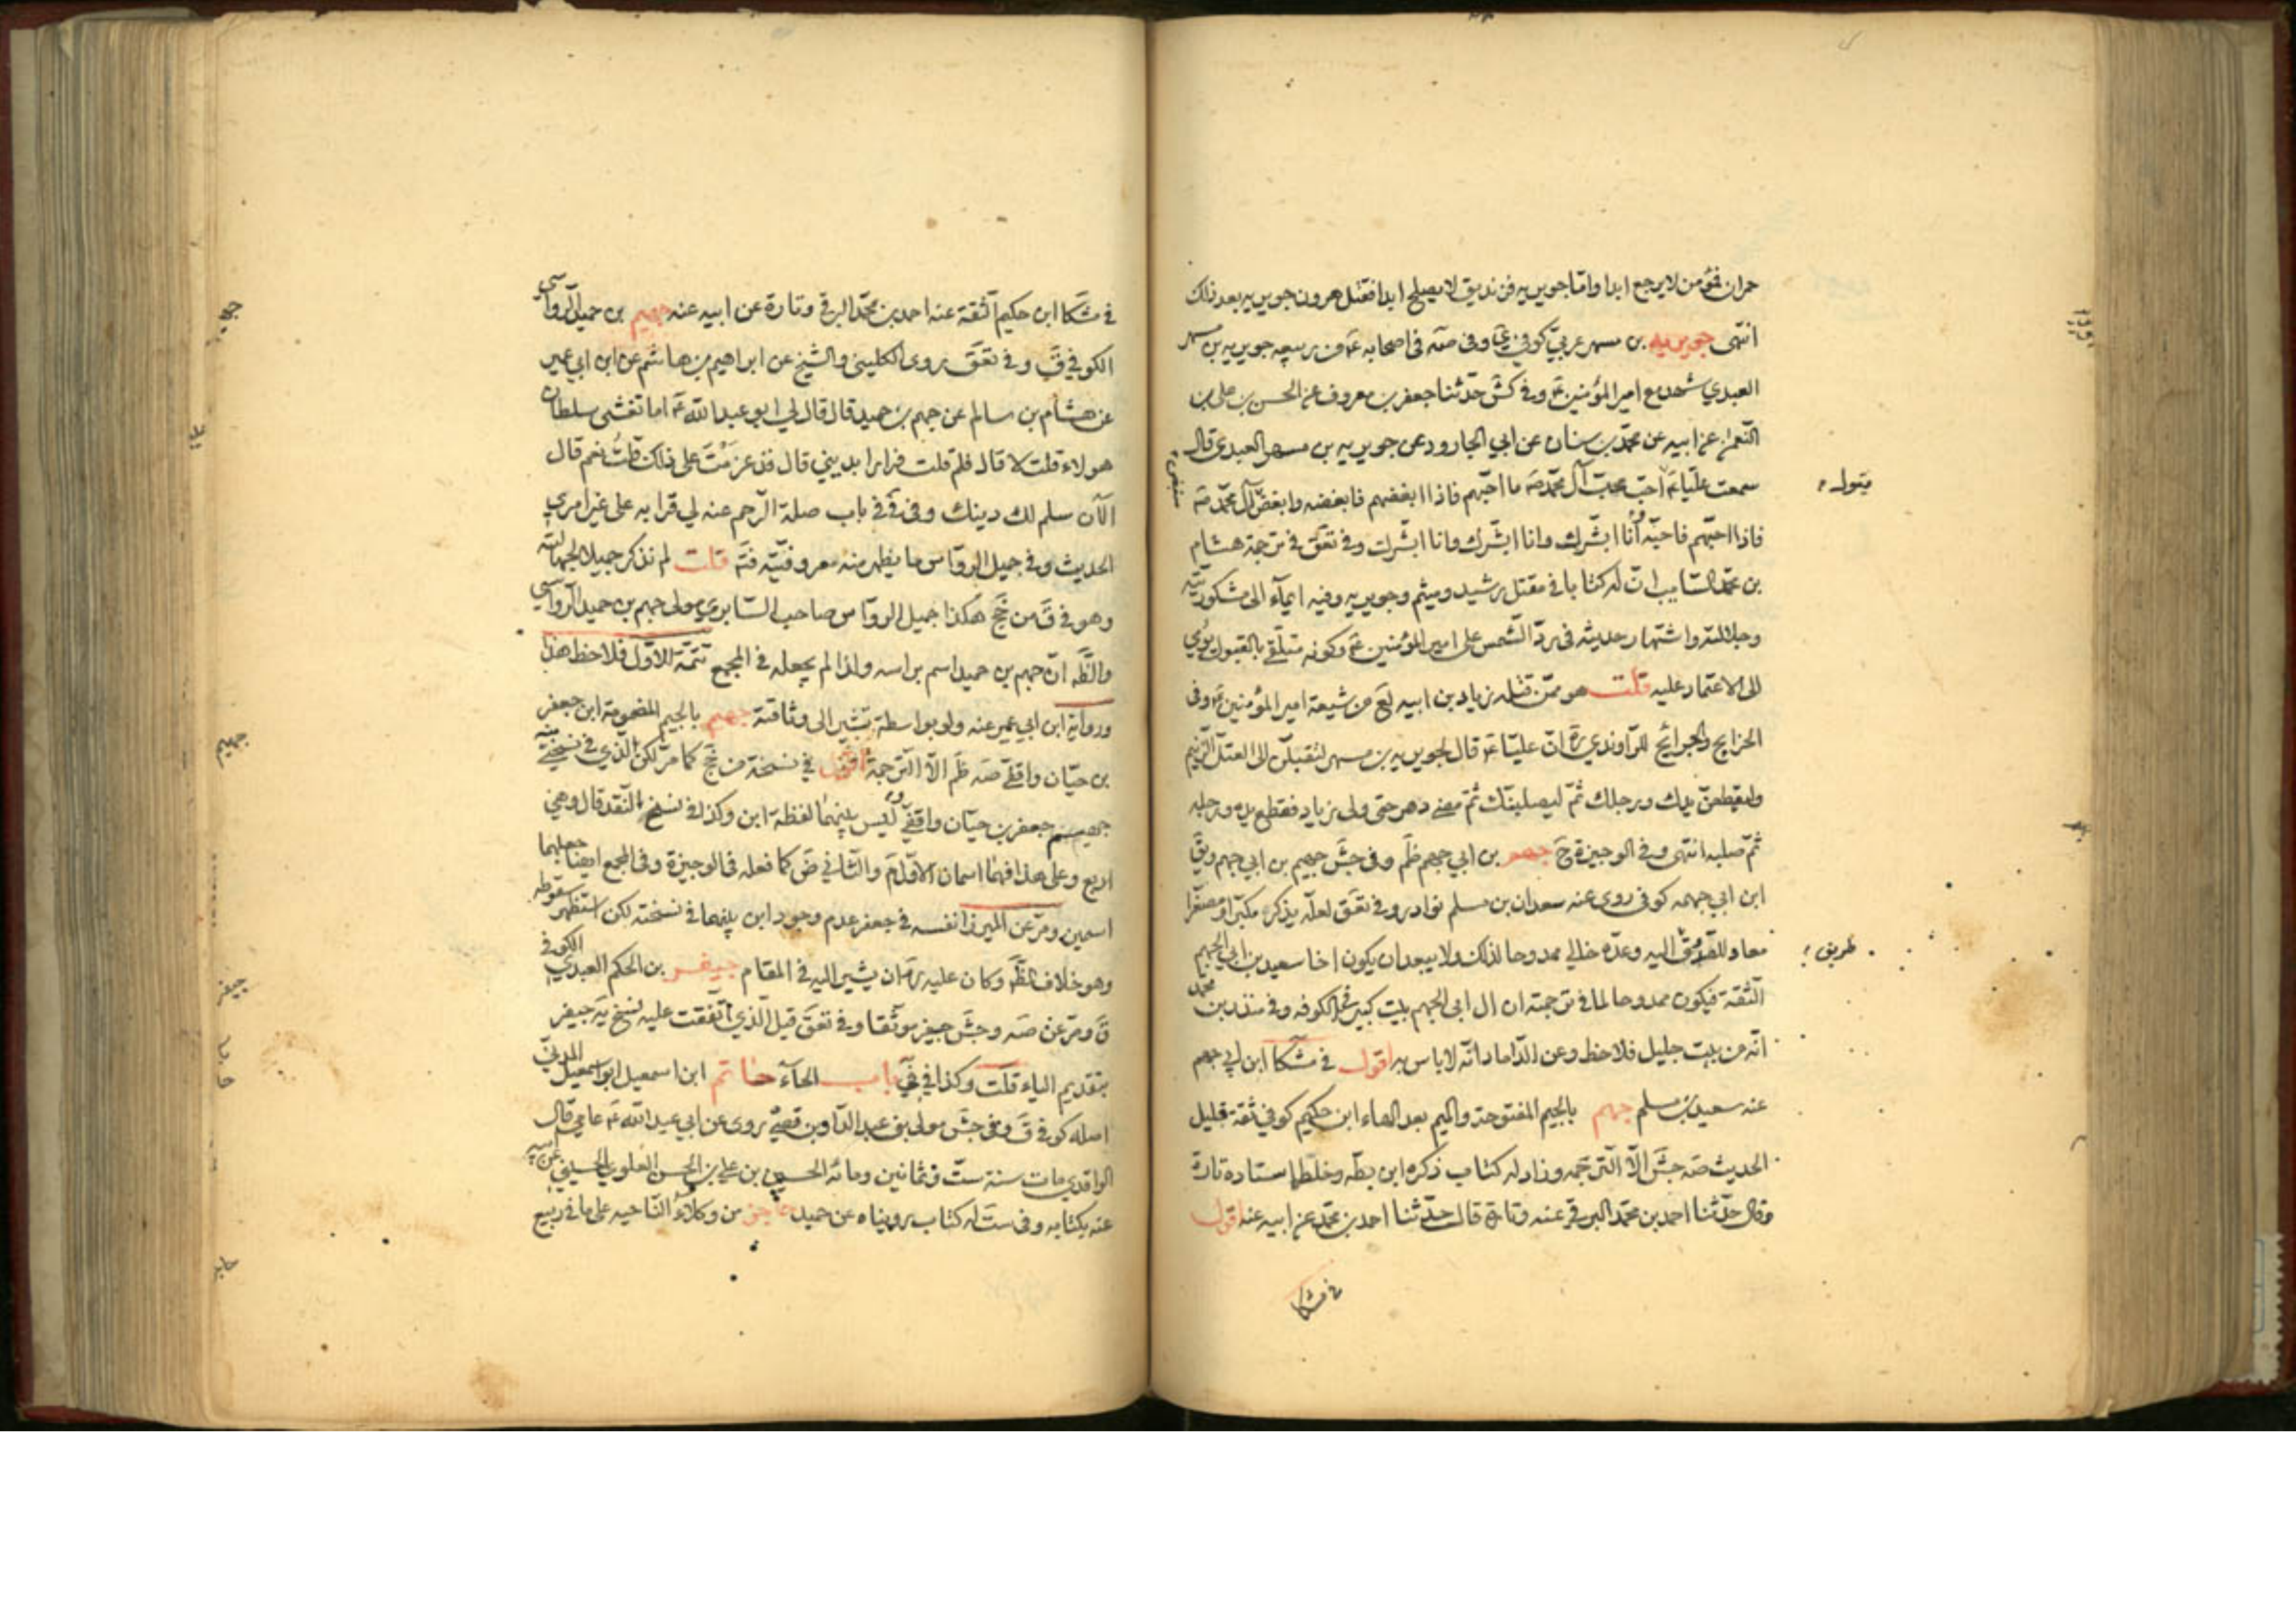 حمران فمؤمن لا يرجع ابدا واما جويريه فزنديق لا يصلح ابدا فقتل هرون جويريه بعد ذلك
انتهى جويريه بن مسهر عربيّ كوفي ى وفى صه فى اصحابه ع من ربيعه جويريه بن مسهر
العبدي شهد مع امير المؤمنين ع وفي كش حدّثنا جعفر بن معروف عن الحسن بن علي بن
النّعمان عن ابيه عن محمّد بن سنان عن ابي الجارود عن جويريه بن مسهر العبدي قال
سمعت عليّا ع احبّ محبّ آل محمّد صه ما احبّهم فاذا ابغضهم فابغضه وابغض آل محمّد صه
فاذا احبّهم فاحبّه وأنا ابشّرك وانا ابشّرك وانا ابشّرك وفي تعق في ترجمة هشام
بن محمّد السّايب انّ له كتابا في مقتل رشيد وميثم وجويريه وفيه ايماء الى مشكوريّته
وجلالته واشتهار حديثه فى ردّ الشّمس على امير المؤمنين ع وكونه متلقّى بالقبول يؤدي
الى الاعتماد عليه قلت هو ممّن قتله زياد بن ابيه لع من شيعة امير المؤمنين ع وفى
الخرايج والجرائح للرّاوندي ره انّ عليّا ع قال لجويريه بن مسهر لتقتلنّ الى العتلّ الزّنيم
وليقطعنّ يدك ورجلك ثمّ ليصلبنّك ثمّ مضى دهر حتى ولى زياد فقطع يده ورجله
ثمّ صلبه انتهى وفي الوجيزة ح جهم بن ابي جهم ظم وفى جش جهيم بن ابي جهم ويق
ابن ابي جهمه كوفى روى عنه سعدان بن مسلم نوادر وفي تعق لعلّه يذكر مكبّرا ومصغّرا
معا وللصّدوق اليه وعدّه خالي ممدوحا لذلك ولا يبعد ان يكون اخا سعيد بن ابي الجهم
الثقة فيكون ممدوحا لما في ترجمته ان ال ابي الجهم بيت كبير فى الكوفه وفي منذر بن محمّد
انّه من بيت جليل فلاحظ وعن الدّاماد انّه لا باس به اقول في مشكا ابن ابي جهم
عنه سعيد بن مسلم جهم بالجيم المفتوحة والميم بعد الهاء ابن حكيم كوفي ثقة قليل
الحديث صه جش الّا التّرجمه وزاد له كتاب ذكره ابن بطّه وخلط اسناده تارة
وقال حدّثنا احمد بن محمّد البرقي عنه وتارة قال حدّثنا احمد بن محمّد عن ابيه عنه اقول
في مشكا
يقول
طريق
في مشكا ابن حكيم الثقة عنه احمد بن محمّد البرقي وتارة عن ابيه عنه جهيم بن حميد الرواسي
الكوفي ق وفي تعق روى الكليني والشيخ عن ابراهيم بن هاشم عن ابن ابي عمير
عن هشام بن سالم عن جهم بن حميد قال قال لي ابو عبد الله ع اما تغشى سلطان
هولاء قلت لا قال فلم قلت فرارا بديني قال فقد عزمت على ذلك قلت نعم قال
الآن سلم لك دينك وفى في باب صلة الرّحم عنه لي قرابه على غير امري
الحديث وفي جميل الروّاس ما يظهر منه معروفيّته فتم قلت لم نذكر جميلا لجهالته
وهو في ق من جخ هكذا جميل الروّاس صاحب السّابري مولى جهم بن حميد الرّواسي
والظّه انّ جهم بن حميد اسم براسه ولذا لم يجعله في المجمع تتمّة للاوّل فلاحظ هذا
ورواية ابن ابي عمير عنه ولو بواسطة تشير الى وثاقته جهيم بالجيم المضمومة ابن جعفر
بن حيّان واقفيّ صه ظم الّا التّرجمة اقول في نسخة من جخ كما مرّ لكن الذي في نسختي منه
جهيم جعفر بن حيّان واقفيّ وليس بينهما لفظة ابن وكذا في نسخ النّقد قال وهي
اربع وعلى هذا فهما اسمان الاوّل م والثّاني ض كما فعله فى الوجيزة وفى المجمع ايضا جعلهما
اسمين ومرّ عن الميرزا نفسه في جعفر عدم وجود ابن بينهما في نسخته لكن استظهر سقوطه
وهو خلاف الظّه وكان عليه ره ان يشير اليه في المقام جيفر بن الحكم العبدي الكوفي
ق ومرّ عن صه وجش جيفر موثّقا وفي تعق قيل الّذي اتّفقت عليه نسخ يه جيفر
بتقديم الياء قلت وكذا في باب الحآء حاتم ابن اسمعيل ابو اسمعيل المدنيّ
اصله كوفى ق وفى جش مولى بنى عبد الدّار بن قصيّ روى عن ابي عبد الله ع عامي قال
الواقدي مات سنة ستّ وثمانين ومائه الحسين بن علي بن الحسن العلوي الحسيني عن ابيه
عنه بكتابه وفى ست له كتاب رويناه عن حميد حاجز من وكلاء النّاحيه على ما في ربيع
جهيم
جيفر